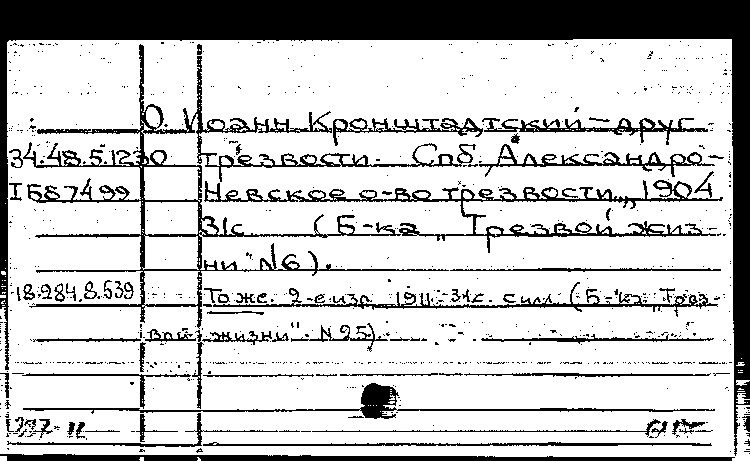 О. Иоанн Кронштадтский – друг
34.48.5.1230 трезвости. Спб., Александро-
I 687499 Невское о-во трезвости, 1904
31с. (Б-ка „Трезвой жиз-
ни" №6).
18.284.8.539 То же. 2-е изд. 1911. 31с. с илл. (Б-ка „Трез-
вой жизни". N 25).
237-11